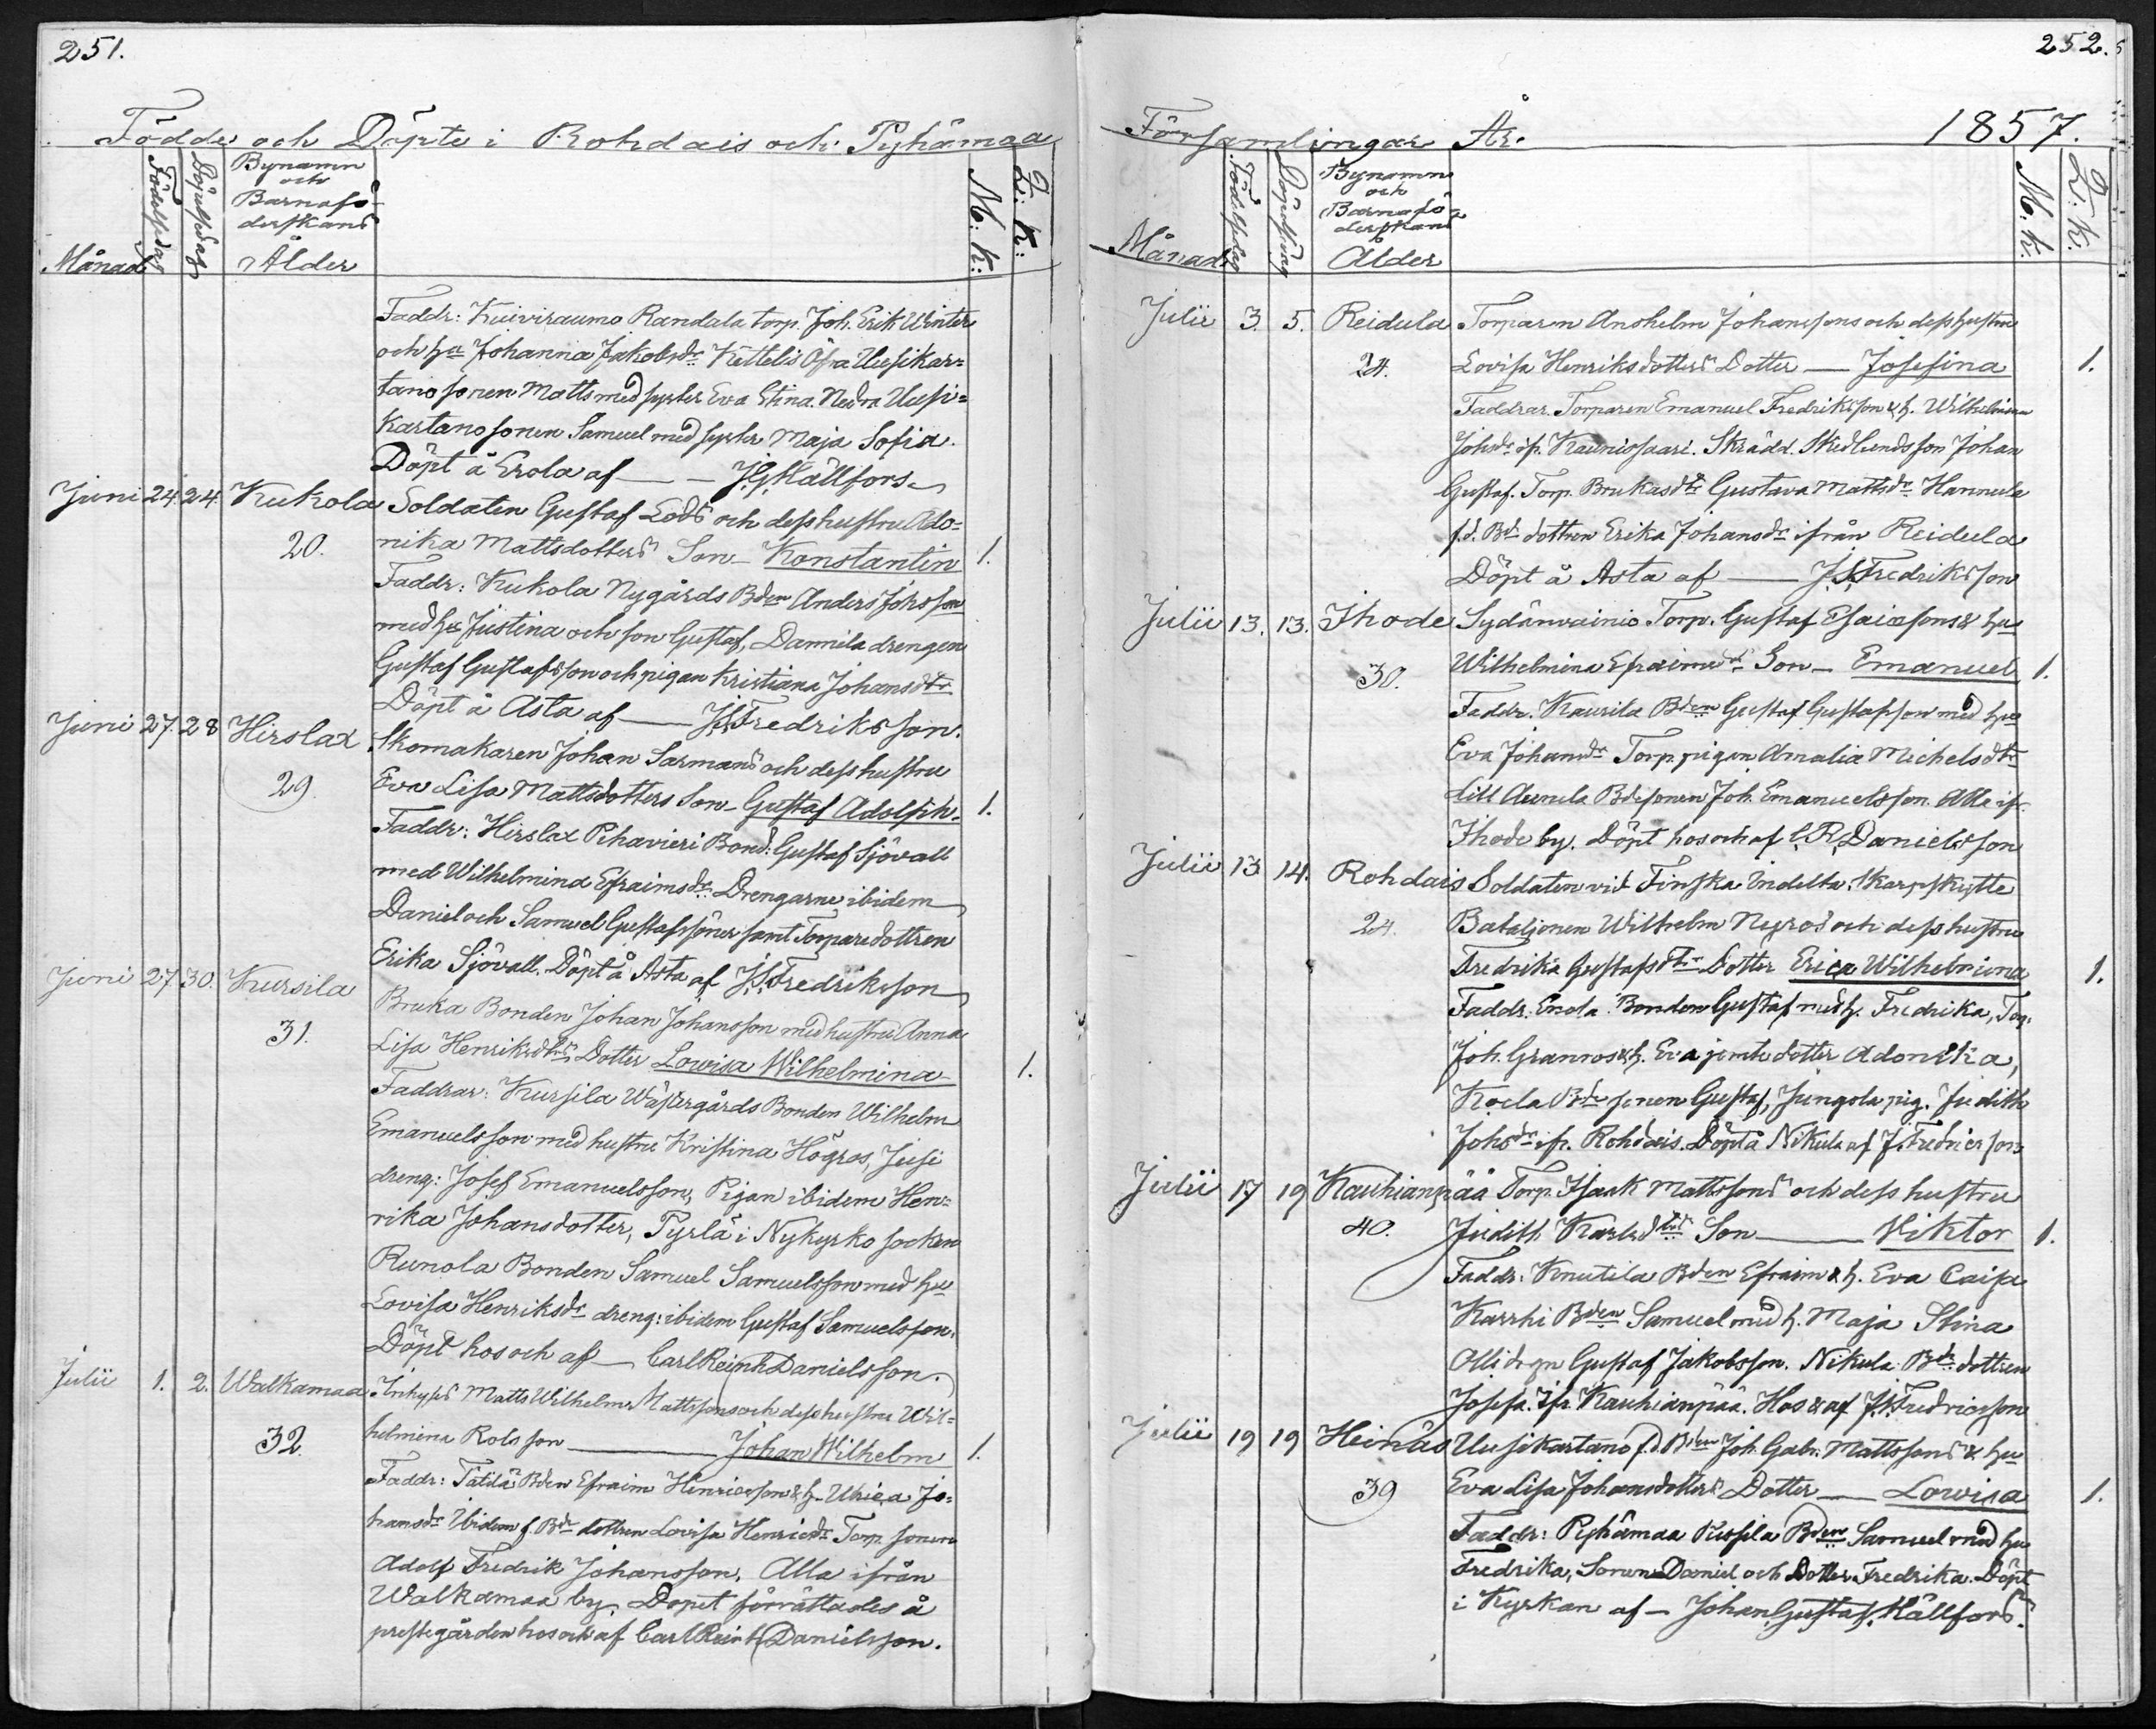 251.
Födde och Döpte i Rohdais och Pyhämaa
Månad
Födelsedag
Döpelsedag
Bynamn
och
Barnafö-
derskans
Ålder
M: K:
Q: K:
Faddr: Kuiviraumo Randala torp. Joh. Erik Winter
och hu Johanna Jakobsdr Kettelis Öfra Uusikar=
tano sonen Matts med syster Eva Stina. Nedra Uusi=
kartano sonen Samuel med syster Maja Sofia.
Döpt å Erola af — J.G. Hällfors
Juni 24. 24. Kukola Soldaten Gustaf Lods och dess hustru Ado=
20. nika Mattsdotters Son — Konstantin 1.
Faddr: Kukola Nygårds Bden Anders Johsson
med hu Justina och son Gustaf, Dannila drengen
Gustaf Gustafsson och pigan Kristiana Johansdtr
Döpt å Asta af — J.S. Fredriksson.
Juni 27. 28 Hirslax Skomakaren Johan Sarmans och dess hustru
29. Eva Lisa Mattsdotters Son — Gustaf Adolph. 1.
Faddr: Hirslax Pihavieri Bond: Gustaf Sjövall
med Wilhelmina Efraimsdr. Drengarne ibidem
Daniel och Samuel Gustafssöner samt Torparedottren
Erika Sjövall. Döpt å Asta af J.S. Fredriksson
Juni 27. 30. Kursila Bruka Bonden Johan Johansson med hustru Anna
31. Lisa Henriksdtrs Dotter Lowisa Wilhelmina 1.
Faddrar: Kursila Wästergårds Bonden Wilhelm
Emanuelsson med hustru Kristina Högros, Jusi
dreng: Josef Emanuelsson, Pigan ibidem Hen=
rika Johansdotter, Pyrlä i Nykyrko socken
Runola Bonden Samuel Samuelsson med hu
Lovisa Henriksdr dreng: ibidem Gustaf Samuelsson.
Döpt hos och af — Carl Reinh Danielsson.
Julii 1. 2. Walkamaa Inhyses Matts Wilhelm Mattssons och dess hustru Wil=
32. helmina Rolsson — Johan Wilhelm 1.
Faddr: Tätilä Bden Efraim Henricsson & h. Ulrica Jo=
hansdr Ibidem f. Bdr dottren Lovisa Henricsdr Torp. sonen
Adolf Fredrik Johansson, Alla ifrån
Walkamaa by. Dopet förrättades å
prestegården hos och af Carl Reinh Danielsson.
252.
Församlingar År. 1857.
Månad
Födelsedag
Döpelsedag
Bynamn
och
Barnafö-
derskans
Ålder
M: K:
Q: K:
Julii 3. 5. Reidula Torparen Anshelm Johanssons och dess hustru
24. Lovisa Henriksdotters Dotter — Josefina 1.
Faddrar. Torparen Emanuel Fredriksson & h. Wilhelmina
Johsdr ifr. Kaunissaari. Skrädd. Skedlunds son Johan
Gustaf. Torp. Brukas dtr Gustava Mattsdr Hannula
f.d. Bds dottren Erika Johansdr ifrån Reidula
Döpt å Asta af — J.S. Fredriksson
Julii 13. 13. Ihode Sydänvainio Torp. Gustaf Esaiassons & hus
30. Wilhelmina Efraimsdrs Son — Emanuel 1.
Faddr. Kaurila Bden Gustaf Gustafsson med hu
Eva Johansdr Torp. pigan Amalia Michelsdtr
Lill Aunela Bdesonen Joh. Emanuelsson. Alle ifr.
Ihode by. Döpt hos och af C. R. Danielsson
Julii 13 14. Rohdais Soldaten vid Finska Indelta Skarpskytte
24. Bataljonen Wilhelm Nyros och dess hustru
Fredrika Gustafsdtr Dotter Erica Wilhelmina 1.
Faddr. Enola Bonden Gustaf med h. Fredrika, Torp.
Joh. Granros & h. Eva jemte dotter Adonika,
Koela Bde sonen Gustaf, Jungola pig. Judith
Johsdr ifr. Rohdais. Döpt å Nikula af J. Fredricsson
Julii 17 19 Kauhianpää Torp. Isaak Mattssons och dess hustru
40. Judith Karlsdtrs Son — Viktor 1.
Faddr. Knutila Bden Efraim & h. Eva Caisa
Karrhi Bden Samuel med h. Maja Stina
Olli drgn Gustaf Jakobsson. Nikula Bds dottren
Josefa. Ifr. Kauhianpää. Hos & af J.S. Fredricsson
Julii 19 19 Heinäs Uusikartano f.d. Bden Joh. Gabr. Mattssons & hu
39 Eva Lisa Johansdotters Dotter — Lovisa 1.
Faddr: Pyhämaa Kussila Bden Samuel med hu
Fredrika, Sonen Daniel och Dotter Fredrika. Döpt
i Kyrkan af — Johan Gustaf Hällfors.